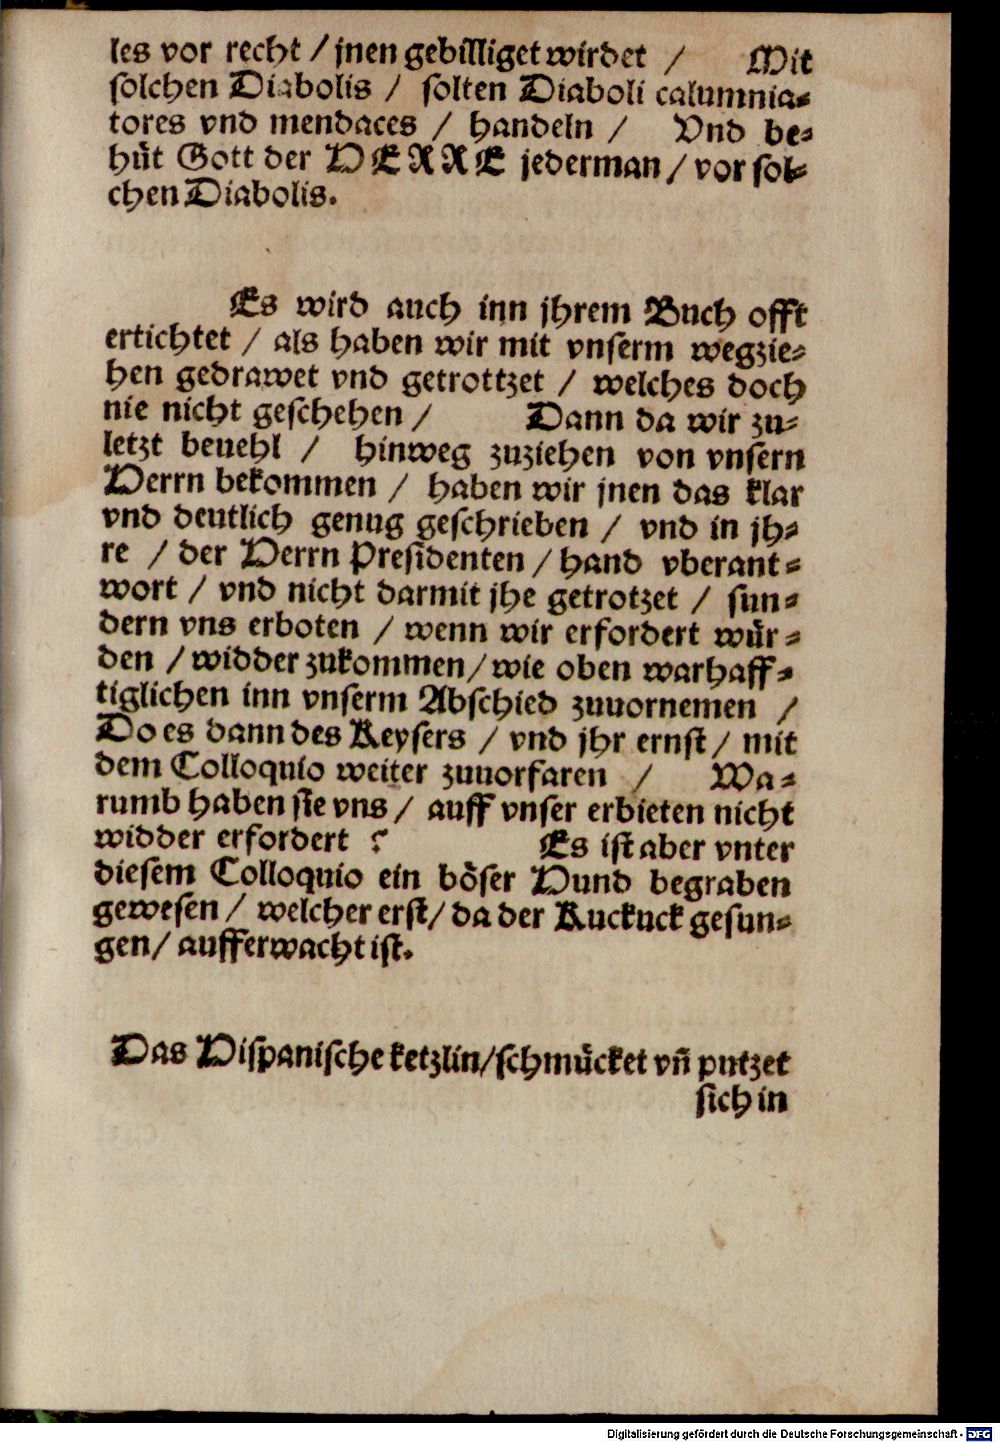 les vor recht / jnen gebilliget wirdet / Mit
solchen Diabolis / solten Diaboli calumnia-
tores vnd mendaces / handeln / Vnd be-
hüt Gott der HERRE jederman / vor sol-
chen Diabolis.
Es wird auch inn jhrem Buch offt
ertichtet / als haben wir mit vnserm wegzie-
hen gedrawet vnd getrottzet / welches doch
nie nicht geschehen / Dann da wir zu-
letzt beuehl / hinweg zuziehen von vnsern
Herrn bekommen / haben wir jnen das klar
vnd deutlich genug geschrieben / vnd in jh-
re / der Herrn Presidenten / hand vberant-
wort / vnd nicht darmit jhe getrotzet / sun-
dern vns erboten / wenn wir erfordert wür-
den / widder zukommen / wie oben warhaff-
tiglichen inn vnserm Abschied zuuornemen /
Do es dann des Keysers / vnd jhr ernst / mit
dem Colloquio weiter zuuorfaren / Wa-
rumb haben sie vns / auff vnser erbieten nicht
widder erfordert ? Es ist aber vnter
diesem Colloquio ein böser Hund begraben
gewesen / welcher erst / da der Kuckuck gesun-
gen / aufferwacht ist.
Das Hispanische ketzlin / schmücket vñ putzet
sich in
Digitalisierung gefördert durch die Deutsche Forschungsgemeinschaft - DFG